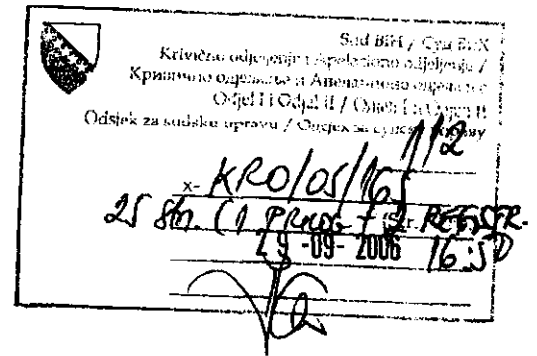 Sud BiH / Суд БиХ
Krivično odjeljenje i Apelaciono odjeljenje /
Кривично одјељење и Апелационо одјељење
Odjel I i Odjel II / Одјел I и Одјел II
Odsjek za sudsku upravu / Одсјек за судску управу
x- KRO/05/165
25 str. (1
29 -09- 2006 16:50